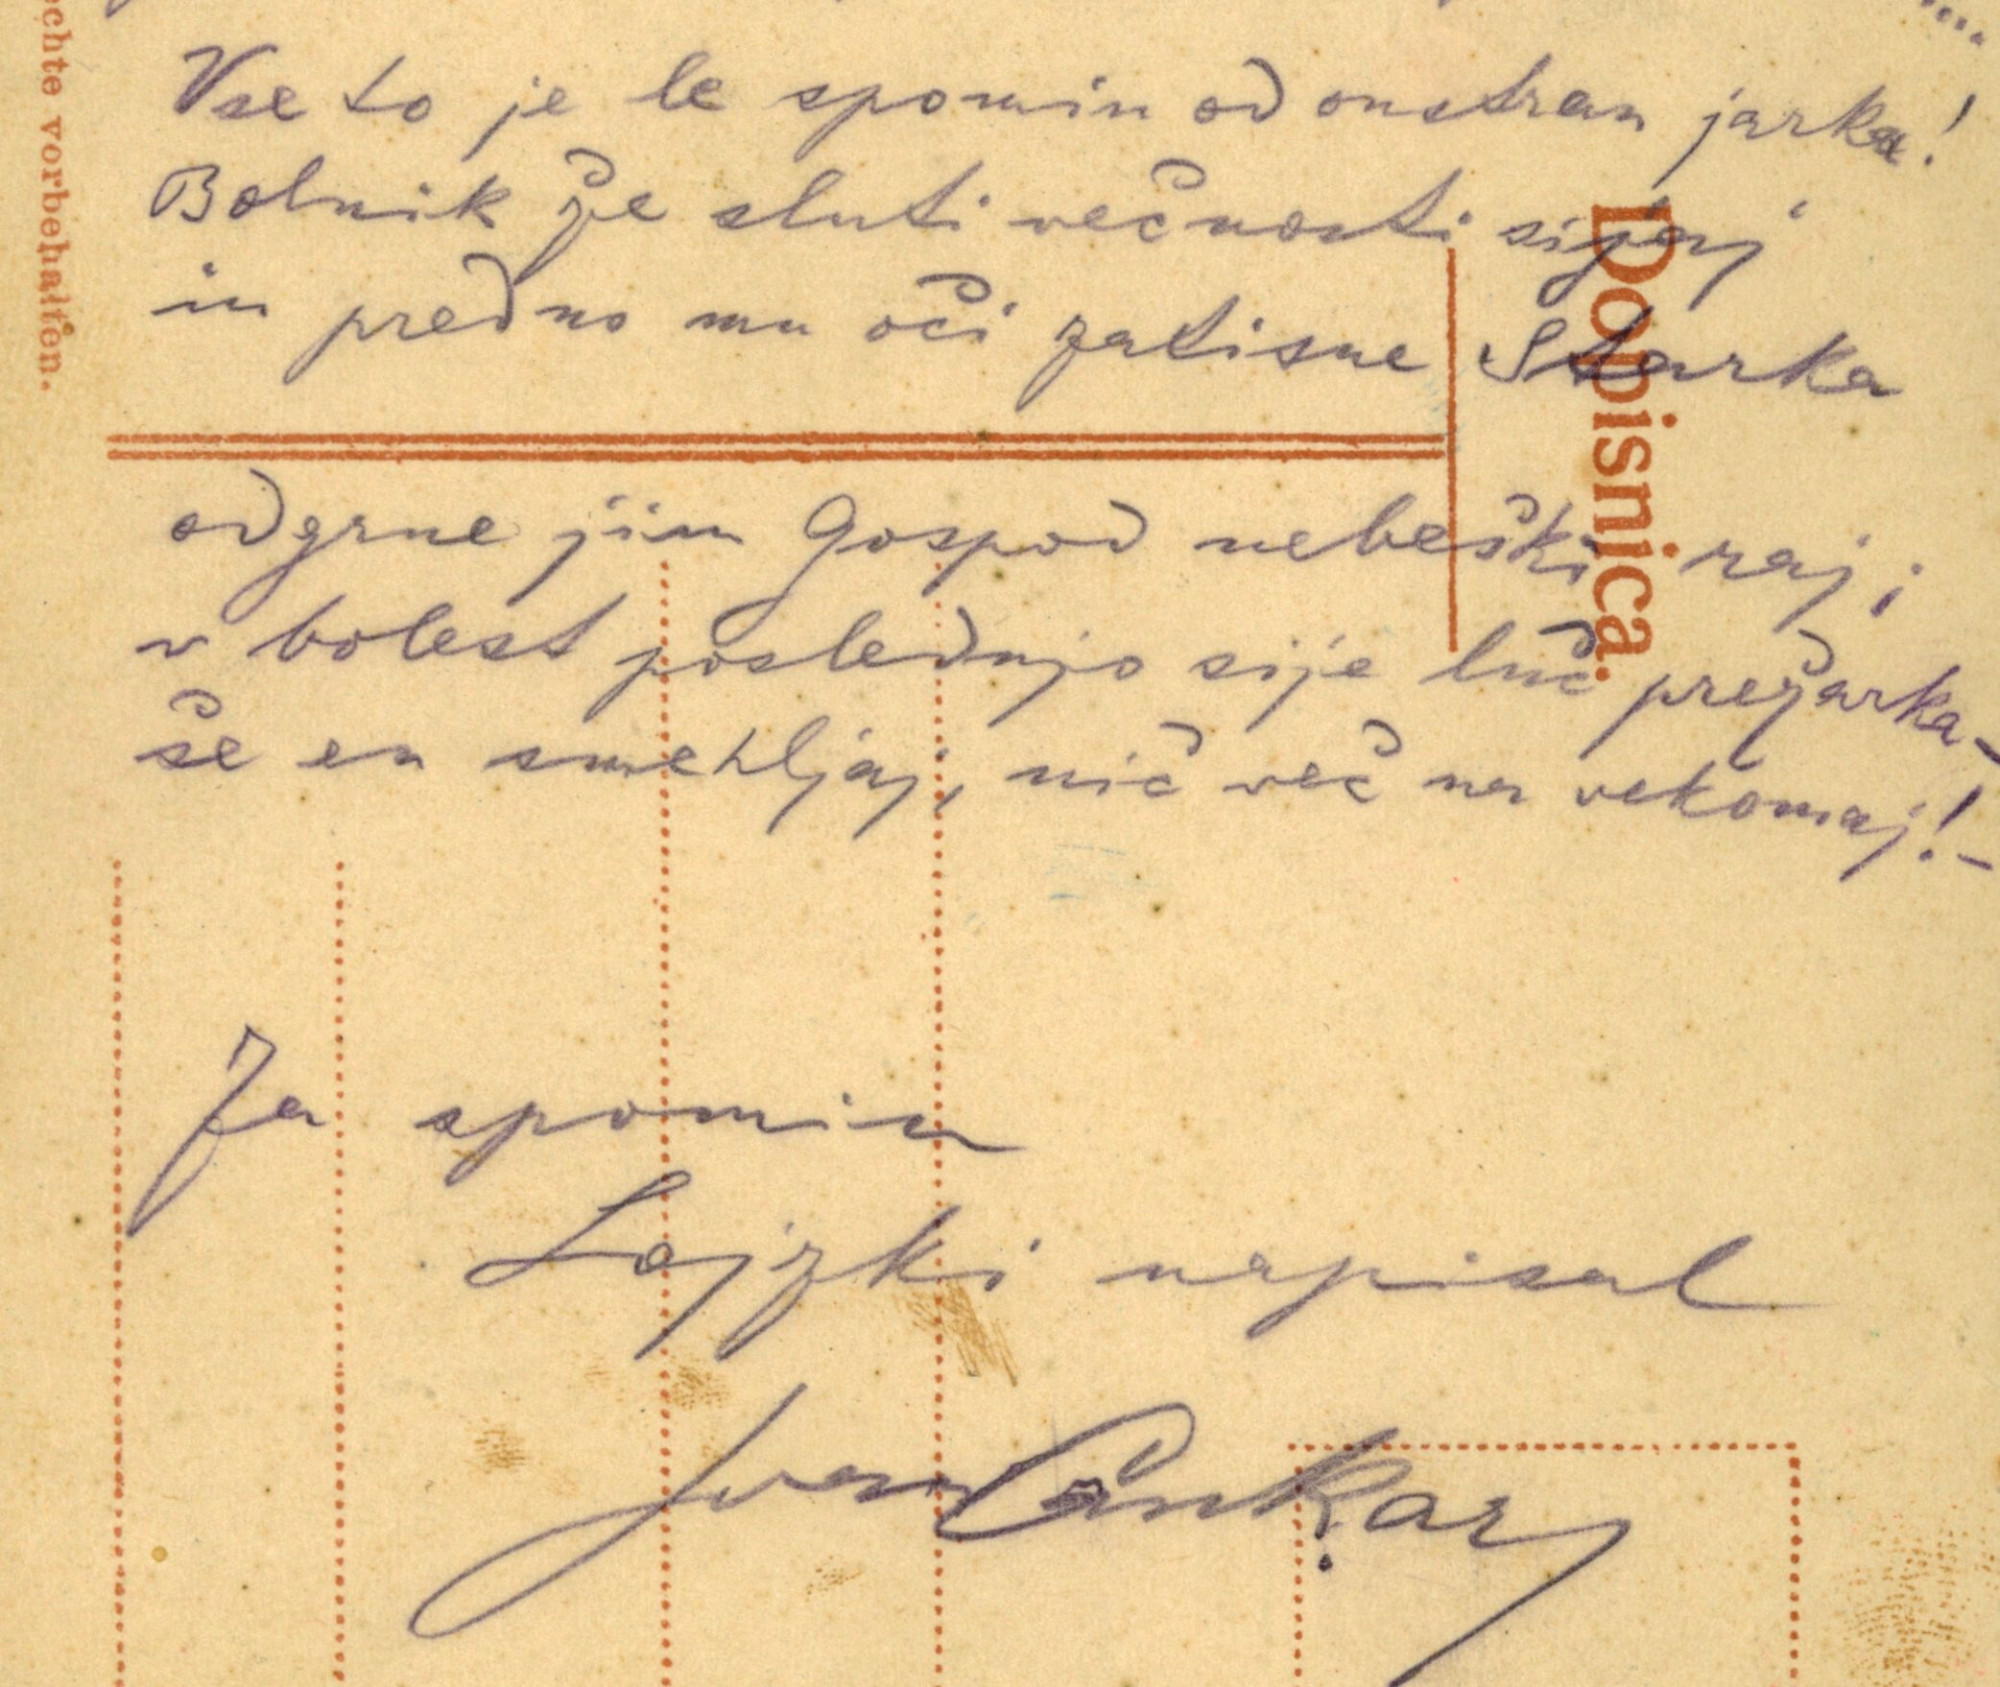 Vse to je le spomin od onstran jarka!
Bolnik že sluti večnosti sijaj
in predno mu oči zatisne Starka
odgrne jim Gospod nebeški raj;
v bolest poslednjo sije luč prežarka –
še en smehljaj, nič več na vekomaj! –
Za spomin
Lojzki napisal
Ivan Cankar
Dopisnica.
chte vorbehalten.